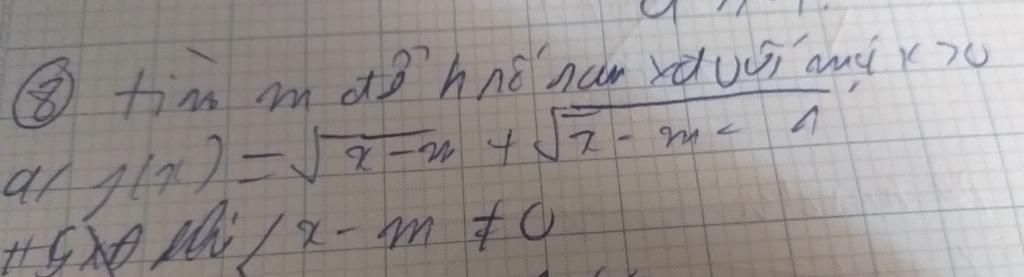 ⑧ tìm m để h số sau xđ với mọi x > 0
a/ f(x) = √x-m + √x-m-1
HSXĐ khi { x - m ≠ 0